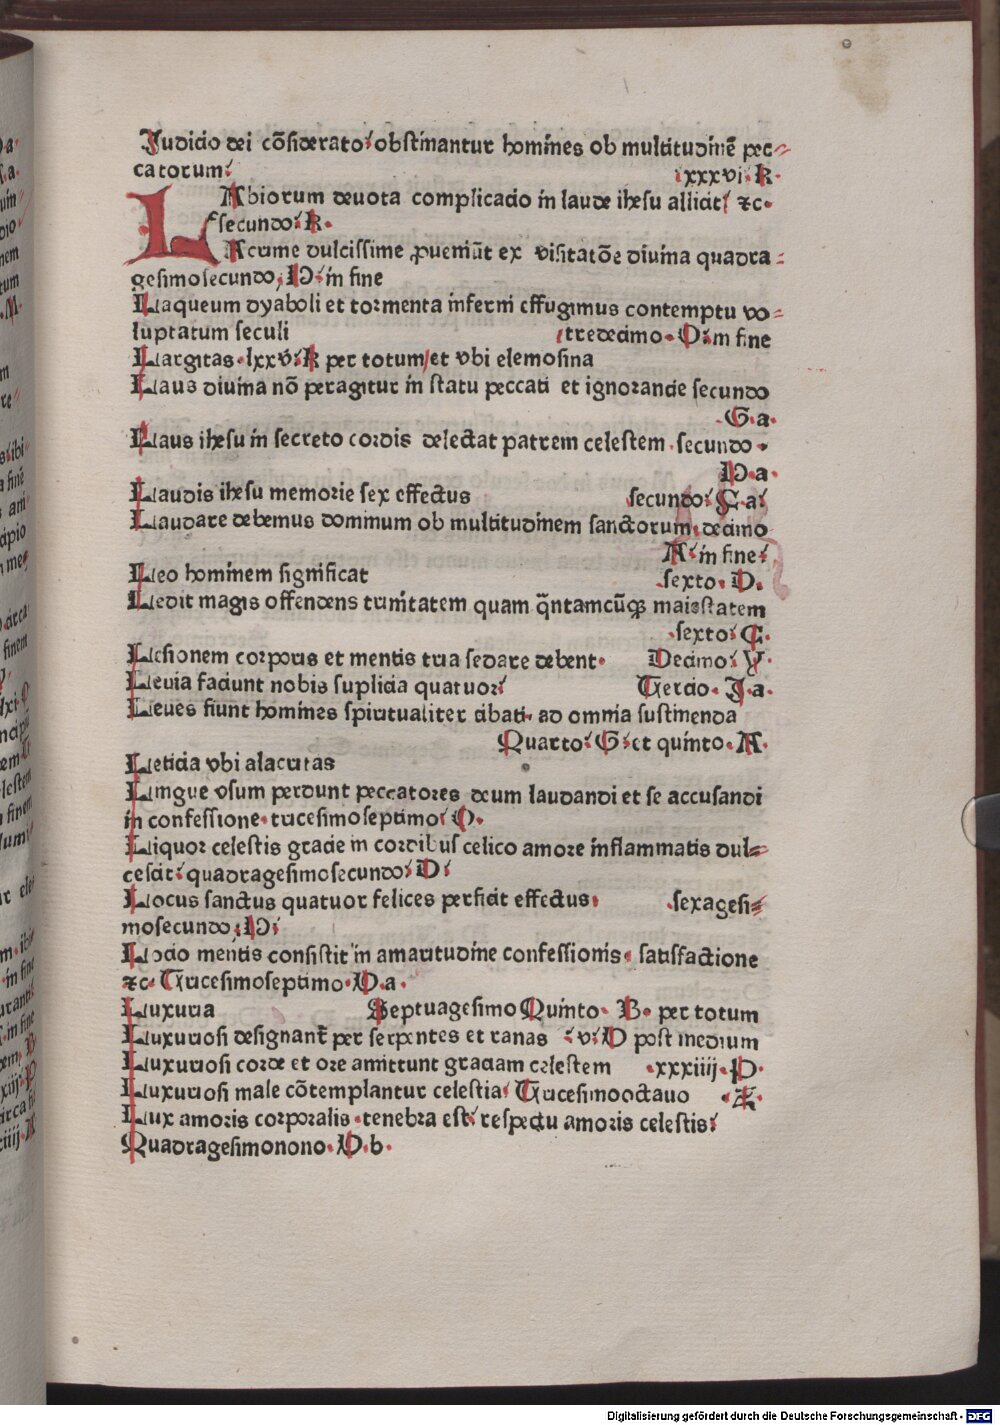 Judicio dei cōsiderato obstinantur homines ob multitudinē pec⸗
catorum lxxxvi. K.
LAbiorum deuota complicacio in laude ihesu allicit ⁊c.
secundo K.
Lacrime dulcissime ꝓueniūt ex visitatōe diuina quadra⸗
gesimosecundo, D in fine
Laqueum dyaboli et tormenta inferni effugimus contemptu vo⸗
luptatum seculi tredecimo. O in fine
Largitas. lxxv. K per totum et vbi elemosina
Laus diuina nō peragitur in statu peccati et ignorancie secundo
G.a.
Laus ihesu in secreto cordis delectat patrem celestem. secundo.
D.a.
Laudis ihesu memorie sex effectus secundo C.a
Laudare debemus dominum ob multitudinem sanctorum. decimo
A in fine
Leo hominem significat sexto. D.
Ledit magis offendens trinitatem quam q̄ntamcūqꝫ maiestatem
sexto C.
Lesionem corporis et mentis tria sedare debent. Decimo V.
Leuia faciunt nobis suplicia quatuor Tercio. I.a.
Leues fiunt homines spiritualiter cibati. ad omnia sustinenda
Quarto G et quinto. A.
Leticia vbi alacritas
Lingue vsum perdunt peccatores deum laudandi et se accusandi
in confessione. tricesimoseptimo O.
Liquor celestis gracie in cordibus celico amore inflammatis dul⸗
cescit quadragesimosecundo D
Locus sanctus quatuor felices perficit effectus. .sexagesi⸗
mosecundo, D
Locio mentis consistit in amaritudine confessionis. satisfactione
⁊c. Tricesimoseptimo. D.a.
Luxuria Septuagesimo Quinto. B. per totum
Luxuriosi designant̄ per serpentes et ranas v D post medium
Luxuriosi corde et ore amittunt graciam celestem .xxxiiij. D.
Luxuriosi male cōtemplantur celestia Tricesimooctauo
Lux amoris corporalis. tenebra est respectu amoris celestis
Quadragesimonono. D.b.
Digitalisierung gefördert durch die Deutsche Forschungsgemeinschaft - DFG